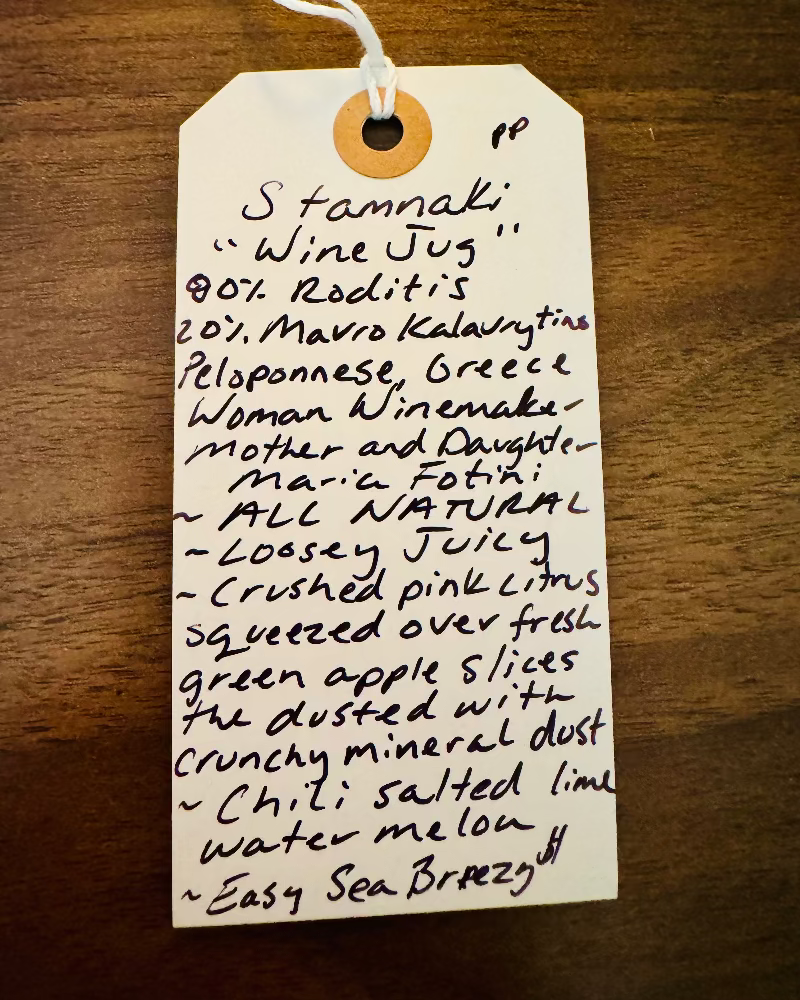 PP
Stamnaki
"Wine Jug"
80% Roditis
20% Mavro Kalavrytino
Peloponnese, Greece
Woman Winemaker
Mother and Daughter
Maria Fotini
~ ALL NATURAL
~ Loosey Juicy
~ Crushed pink citrus
squeezed over fresh
green apple slices
the dusted with
crunchy mineral dust
~ Chili salted lime
water melon
~ Easy Sea Breezy